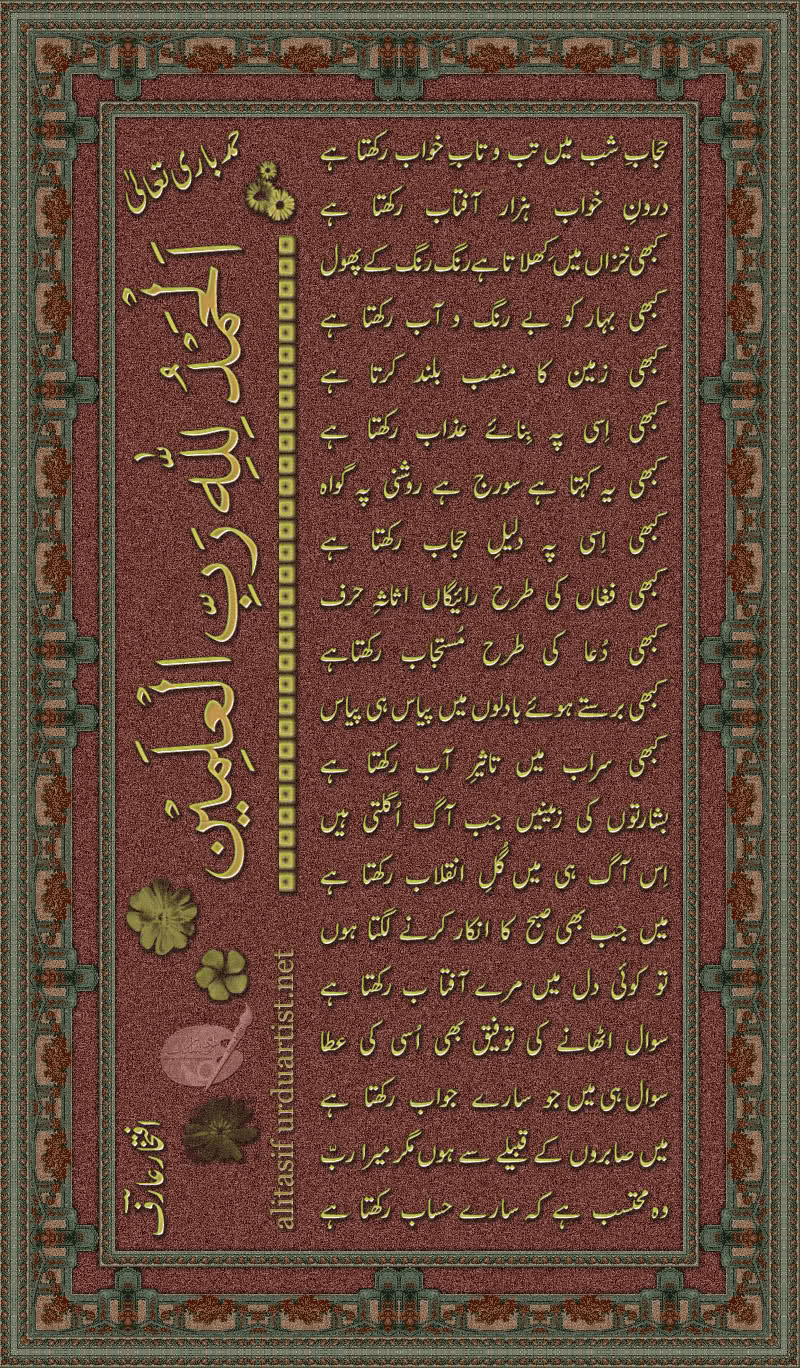 حمد باری تعالیٰ
اَلْحَمْدُ لِلّٰهِ رَبِّ الْعٰلَمِيْنَ
حجابِ شب میں تب و تابِ خواب رکھتا ہے
درونِ خواب ہزار آفتاب رکھتا ہے
کبھی خزاں میں کِھلاتا ہے رنگ رنگ کے پھول
کبھی بہار کو بے رنگ و آب رکھتا ہے
کبھی زمین کا منصب بلند کرتا ہے
کبھی اِسی پہ بِنائے عذاب رکھتا ہے
کبھی یہ کہتا ہے سورج ہے روشنی پہ گواہ
کبھی اِسی پہ دلیلِ حجاب رکھتا ہے
کبھی فغاں کی طرح رائیگاں اثاثہِ حرف
کبھی دُعا کی طرح مُستجاب رکھتا ہے
کبھی برستے ہوئے بادلوں میں پیاس ہی پیاس
کبھی سراب میں تاثیرِ آب رکھتا ہے
بشارتوں کی زمینیں جب آگ اُگلتی ہیں
اِس آگ ہی میں گُلِ انقلاب رکھتا ہے
میں جب بھی صبح کا انکار کرنے لگتا ہوں
تو کوئی دل میں مرے آفتاب رکھتا ہے
سوال اٹھانے کی توفیق بھی اُسی کی عطا
سوال ہی میں جو سارے جواب رکھتا ہے
میں صابروں کے قبیلے سے ہوں مگر میرا ربّ
وہ محتسب ہے کہ سارے حساب رکھتا ہے
افتخار عارف
alitasif urduartist.net